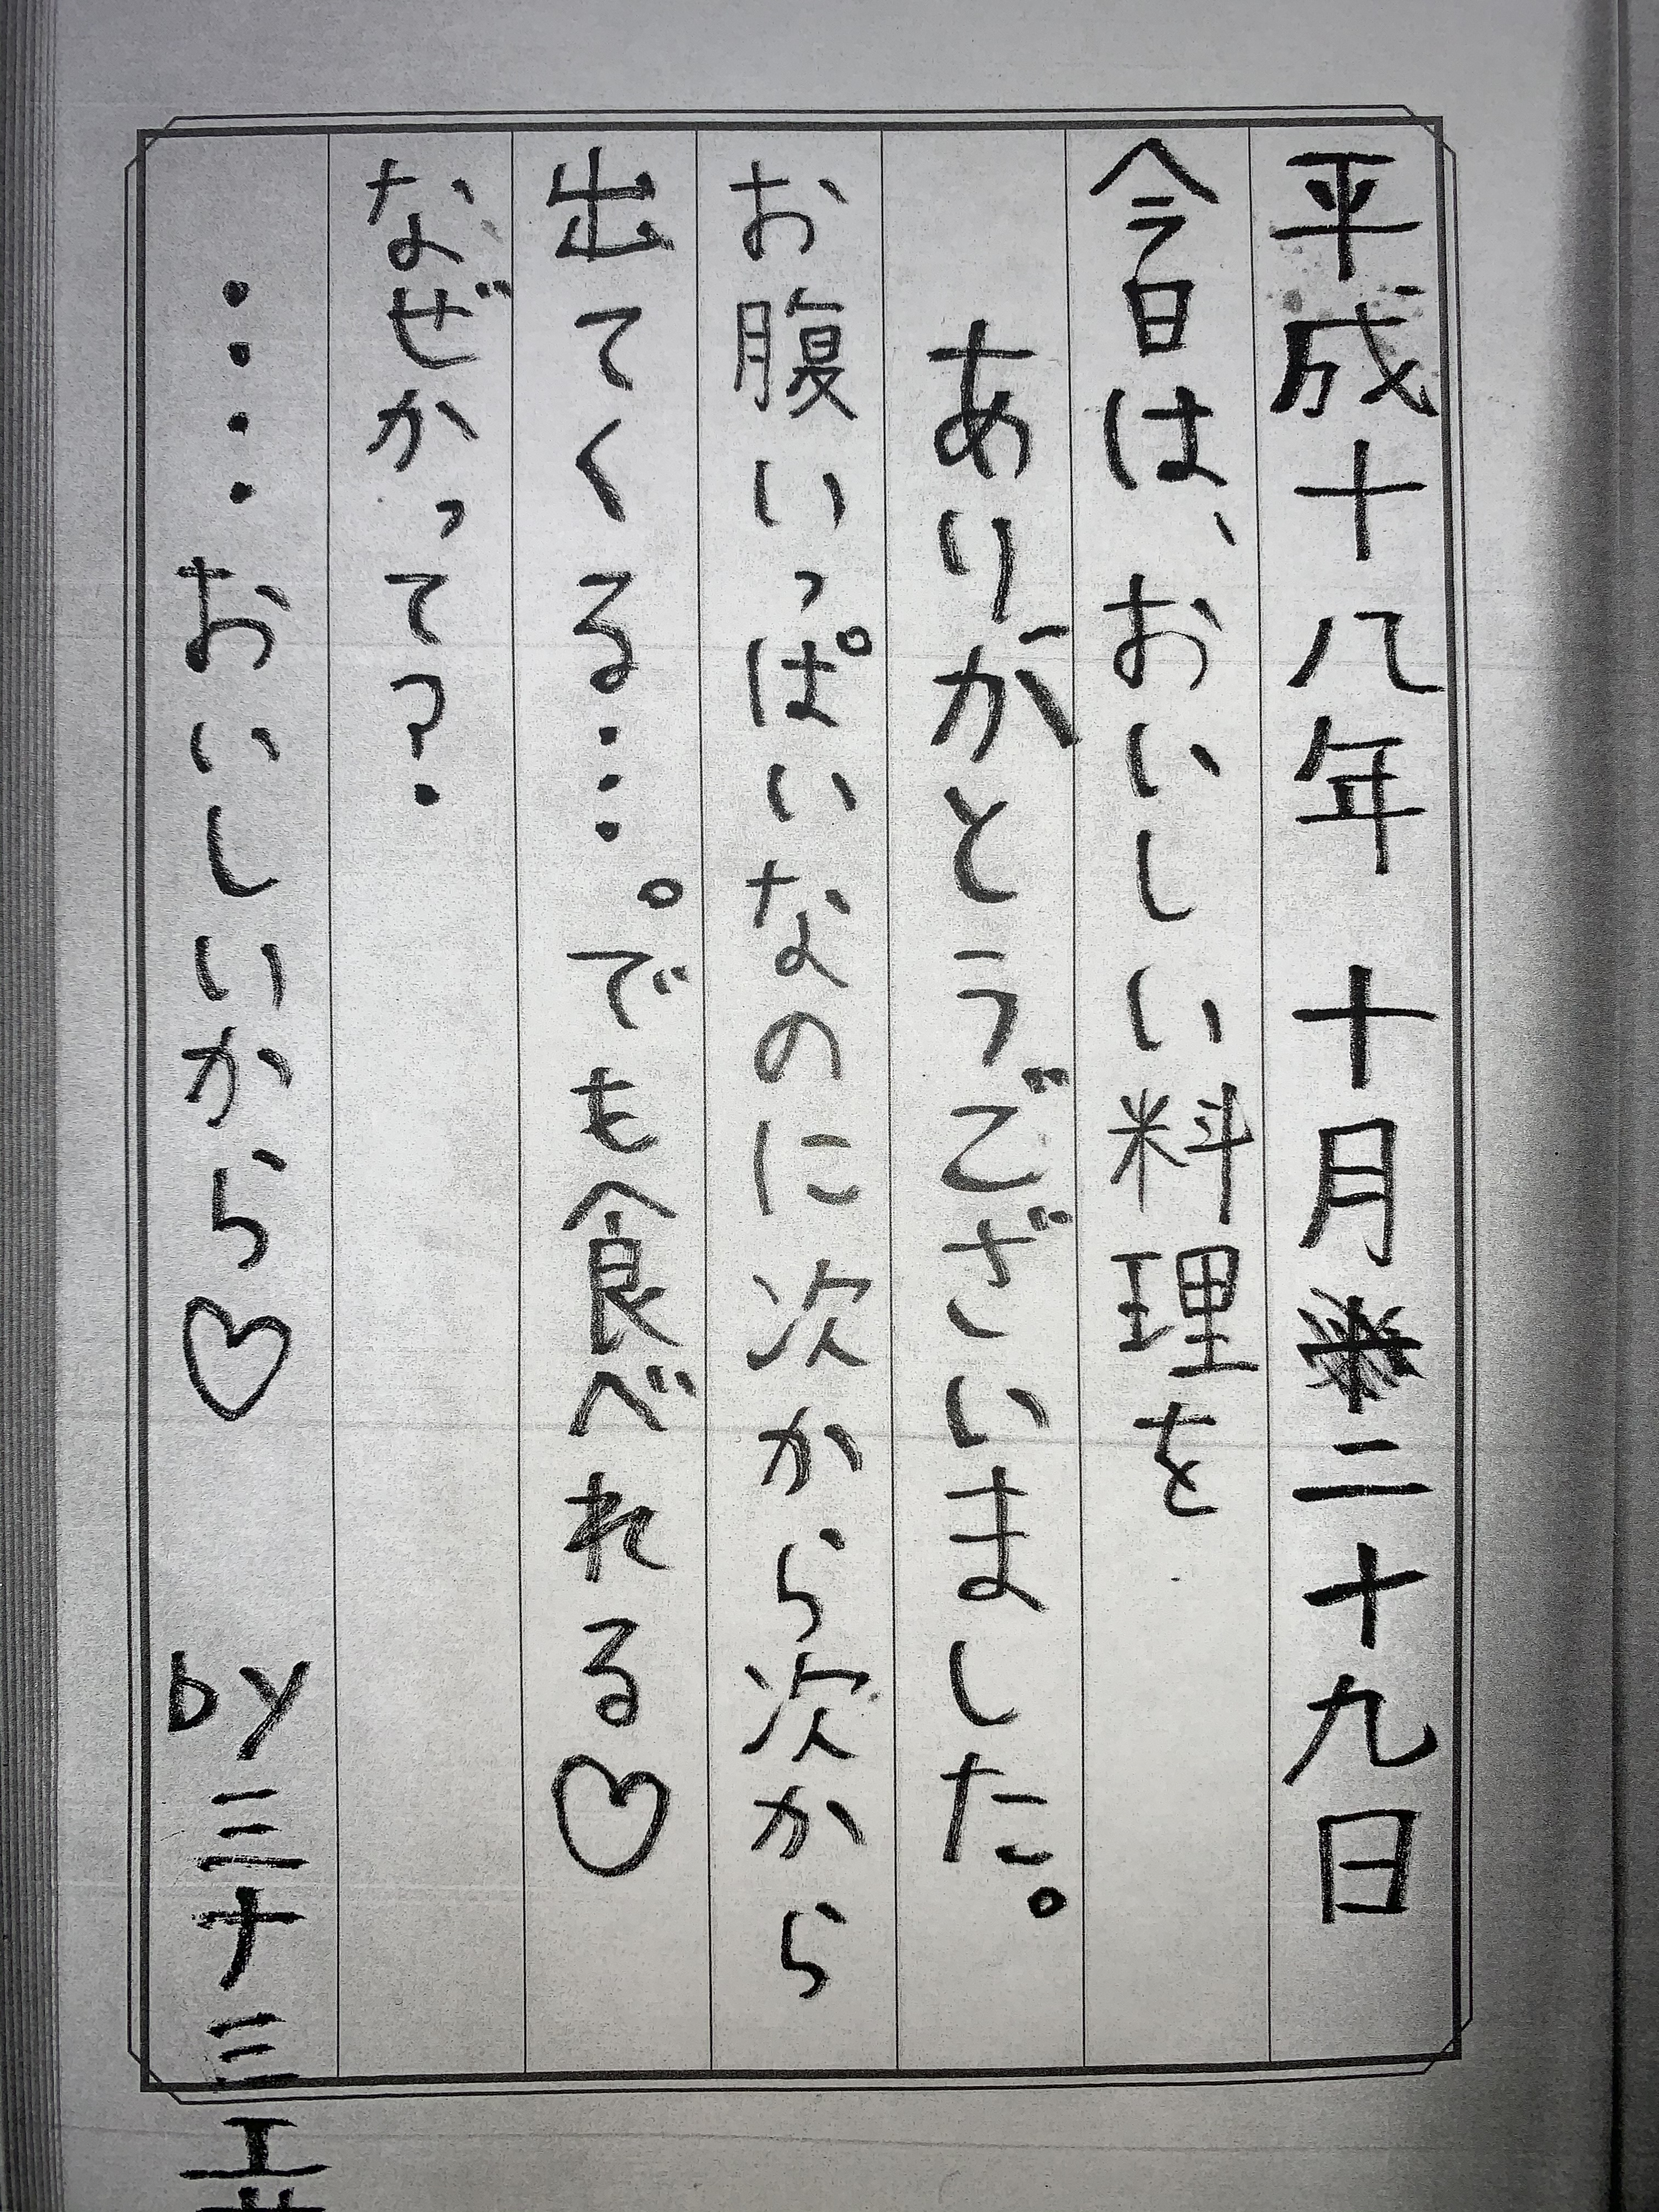 平成十八年 十月二十九日
今日は、おいしい料理を
ありがとうございました。
お腹いっぱいなのに次から次から
出てくる…。でも食べれる♡
なぜかって?
‥‥おいしいから♡ by三十三